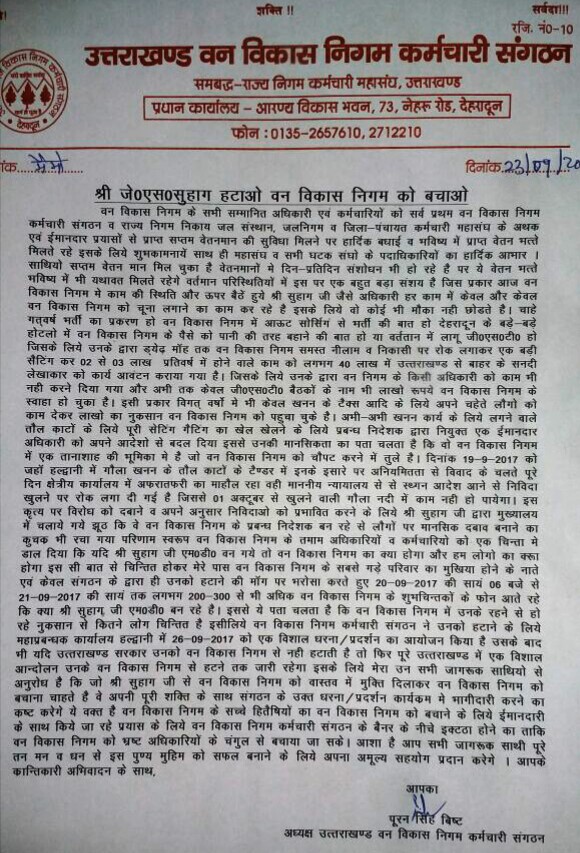 शक्ति !!
सर्वदा!!!
रजि. नं०-10
उत्तराखण्ड वन विकास निगम कर्मचारी संगठन
समबद्ध-राज्य निगम कर्मचारी महासंघ, उत्तराखण्ड
प्रधान कार्यालय - आरण्य विकास भवन, 73, नेहरू रोड, देहरादून
फोन : 0135-2657610, 2712210
दिनांक 23/09/20
श्री जे०एस०सुहाग हटाओ वन विकास निगम को बचाओ
वन विकास निगम के सभी सम्मानित अधिकारी एवं कर्मचारियों को सर्व प्रथम वन विकास निगम
कर्मचारी संगठन व राज्य निगम निकाय जल संस्थान, जलनिगम व जिला-पंचायत कर्मचारी महासंघ के अथक
एवं ईमानदार प्रयासों से प्राप्त सप्तम वेतनमान की सुविधा मिलने पर हार्दिक बधाई व भविष्य में प्राप्त वेतन भत्ते
मिलते रहे इसके लिये शुभकामनायें साथ ही महासंघ व सभी घटक संघों के पदाधिकारियों का हार्दिक आभार ।
साथियो सप्तम वेतन मान मिल चुका है वेतनमानों मे दिन-प्रतिदिन संशोधन भी हो रहे है पर ये वेतन भत्ते
भविष्य में भी यथावत मिलते रहेगे वर्तमान परिस्थितियों में इस पर एक बहुत बढा संशय है जिस प्रकार आज वन
विकास निगम मे काम की स्थिति और ऊपर बैठें हुये श्री सुहाग जी जैसे अधिकारी हर काम में केवल और केवल
वन विकास निगम को चूना लगाने का काम कर रहे है इसके लिए वो कोई भी मौका नही छोडते है। चाहे
गतवर्ष भर्ती का प्रकरण हो वन विकास निगम में आऊट सोर्सिग से भर्ती की बात हो देहरादून के बडे-बडे
होटलो में वन विकास निगम के पैसे को पानी की तरह बहाने की बात हो या वर्ततान में लागू जी०एस०टी० हो
जिसके लिये उनके द्वारा ड्येढ़ मॉह तक वन विकास निगम समस्त नीलाम व निकासी पर रोक लगाकर एक बड़ी
सैटिंग कर 02 से 03 लाख प्रतिवर्ष में होने वाले काम को लगभग 40 लाख में उत्तराखण्ड से बाहर के सनदी
लेखाकार को कार्य आवटन कराया गया है। जिसके लिये उनके द्वारा वन निगम के किसी अधिकारी को काम भी
नही करने दिया गया और अभी तक केवल जी०एस०टी० बैठकों के नाम भी लाखो रूपये वन विकास निगम के
स्वाहा हो चुका है। इसी प्रकार विगत् वर्षो मे भी केवल खनन के टैक्स आदि के लिये अपने चहेते लोगों को
काम देकर लाखो का नुकसान वन विकास निगम को पहुचा चुके है। अभी-अभी खनन कार्य के लिये लगने वाले
तौल काटों के लिये पूरी सेटिंग गैटिंग का खेल खेलने के लिये प्रबन्ध निदेशक द्वारा नियुक्त एक ईमानदार
अधिकारी को अपने आदेशो से बदल दिया इससे उनकी मानसिकता का पता चलता है कि वो वन विकास निगम
में एक तानाशाह की भूमिका मे है जो वन विकास निगम को चौपट करने में तुले है। दिनांक 19-9-2017 को
जहॉ हल्द्वानी में गौला खनन के तौल काटों के टैण्डर में इनके इसारे पर अनियमितता से विवाद के चलते पूरे
दिन क्षेत्रीय कार्यालय में अफरातफरी का माहौल रहा वही माननीय न्यायालय से से स्थगन आदेश आने से निविदा
खुलने पर रोक लगा दी गई है जिससे 01 अक्टूबर से खुलने वाली गौला नदी में काम नही हो पायेगा। इस
कृत्य पर विरोध को दबाने व अपने अनुसार निविदाओं को प्रभावित करने के लिये श्री सुहाग जी द्वारा मुख्यालय
में चलाये गये झूठ कि वे वन विकास निगम के प्रबन्ध निदेशक बन रहे से लौगों पर मानसिक दबाव बनाने का
कुचक भी रचा गया परिणाम स्वरूप वन विकास निगम के तमाम अधिकारियों व कर्मचारियों को एक चिन्ता मे
डाल दिया कि यदि श्री सुहाग जी एम०डी० बन गये तो वन विकास निगम का क्या होगा और हम लोगों का क्या
होगा इस सी बात से चिन्तित होकर मेरे पास वन विकास निगम के सबसे गड़े परिवार का मुखिया होने के नाते
एवं केवल संगठन के द्वारा ही उनको हटाने की मॉग पर भरोसा करते हुए 20-09-2017 की सायं 06 बजे से
21-09-2017 की सायं तक लगभग 200-300 से भी अधिक वन विकास निगम के शुभचिन्तकों के फोन आते रहे
कि क्या श्री सुहाग् जी एम०डी० बन रहे है। इससे ये पता चलता है कि वन विकास निगम में उनके रहने से हो
रहे नुकसान से कितने लोग चिन्तित है इसीलिये वन विकास निगम कर्मचारी संगठन ने उनको हटाने के लिये
महाप्रबन्धक कार्यालय हल्द्वानी में 26-09-2017 को एक विशाल धरना/प्रदर्शन का आयोजन किया है उसके बाद
भी यदि उत्तराखण्ड सरकार उनको वन विकास निगम से नही हटाती है तो फिर पूरे उत्तराखण्ड में एक विशाल
आन्दोलन उनके वन विकास निगम से हटने तक जारी रहेगा इसके लिये मेरा उन सभी जागरूक साथियो से
अनुरोध है कि जो श्री सुहाग जी से वन विकास निगम को वास्तव में मुक्ति दिलाकर वन विकास निगम को
बचाना चाहते है वे अपनी पूरी शक्ति के साथ संगठन के उक्त धरना/प्रदर्शन कार्यकम मे भागीदारी करने का
कष्ट करेगे ये वक्त है वन विकास निगम के सच्चे हितैषियों का वन विकास निगम को बचाने के लिये ईमानदारी
के साथ किये जा रहे प्रयास के लिये वन विकास निगम कर्मचारी संगठन के बैनर के नीचे इक्टठा होने का ताकि
वन विकास निगम को भ्रष्ट अधिकारियों के चंगुल से बचाया जा सके। आशा है आप सभी जागरूक साथी पूरे
तन मन व धन से इस पुण्य मुहिम को सफल बनाने के लिये अपना अमूल्य सहयोग प्रदान करेगे । आपके
कान्तिकारी अभिवादन के साथ,
आपका
पूरन सिंह बिष्ट
अध्यक्ष उत्तराखण्ड वन विकास निगम कर्मचारी संगठन